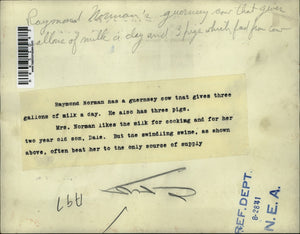 Raymond Norman's guernsey cow that gives
gallons of milk a day and 3 pigs which feed from cow
Raymond Norman has a guernsey cow that gives three
gallons of milk a day. He also has three pigs.
Mrs. Norman likes the milk for cooking and for her
two year old son, Dale. But the swindling swine, as shown
above, often beat her to the only source of supply
A97
REF. DEPT.
6-28-41
N. E. A.